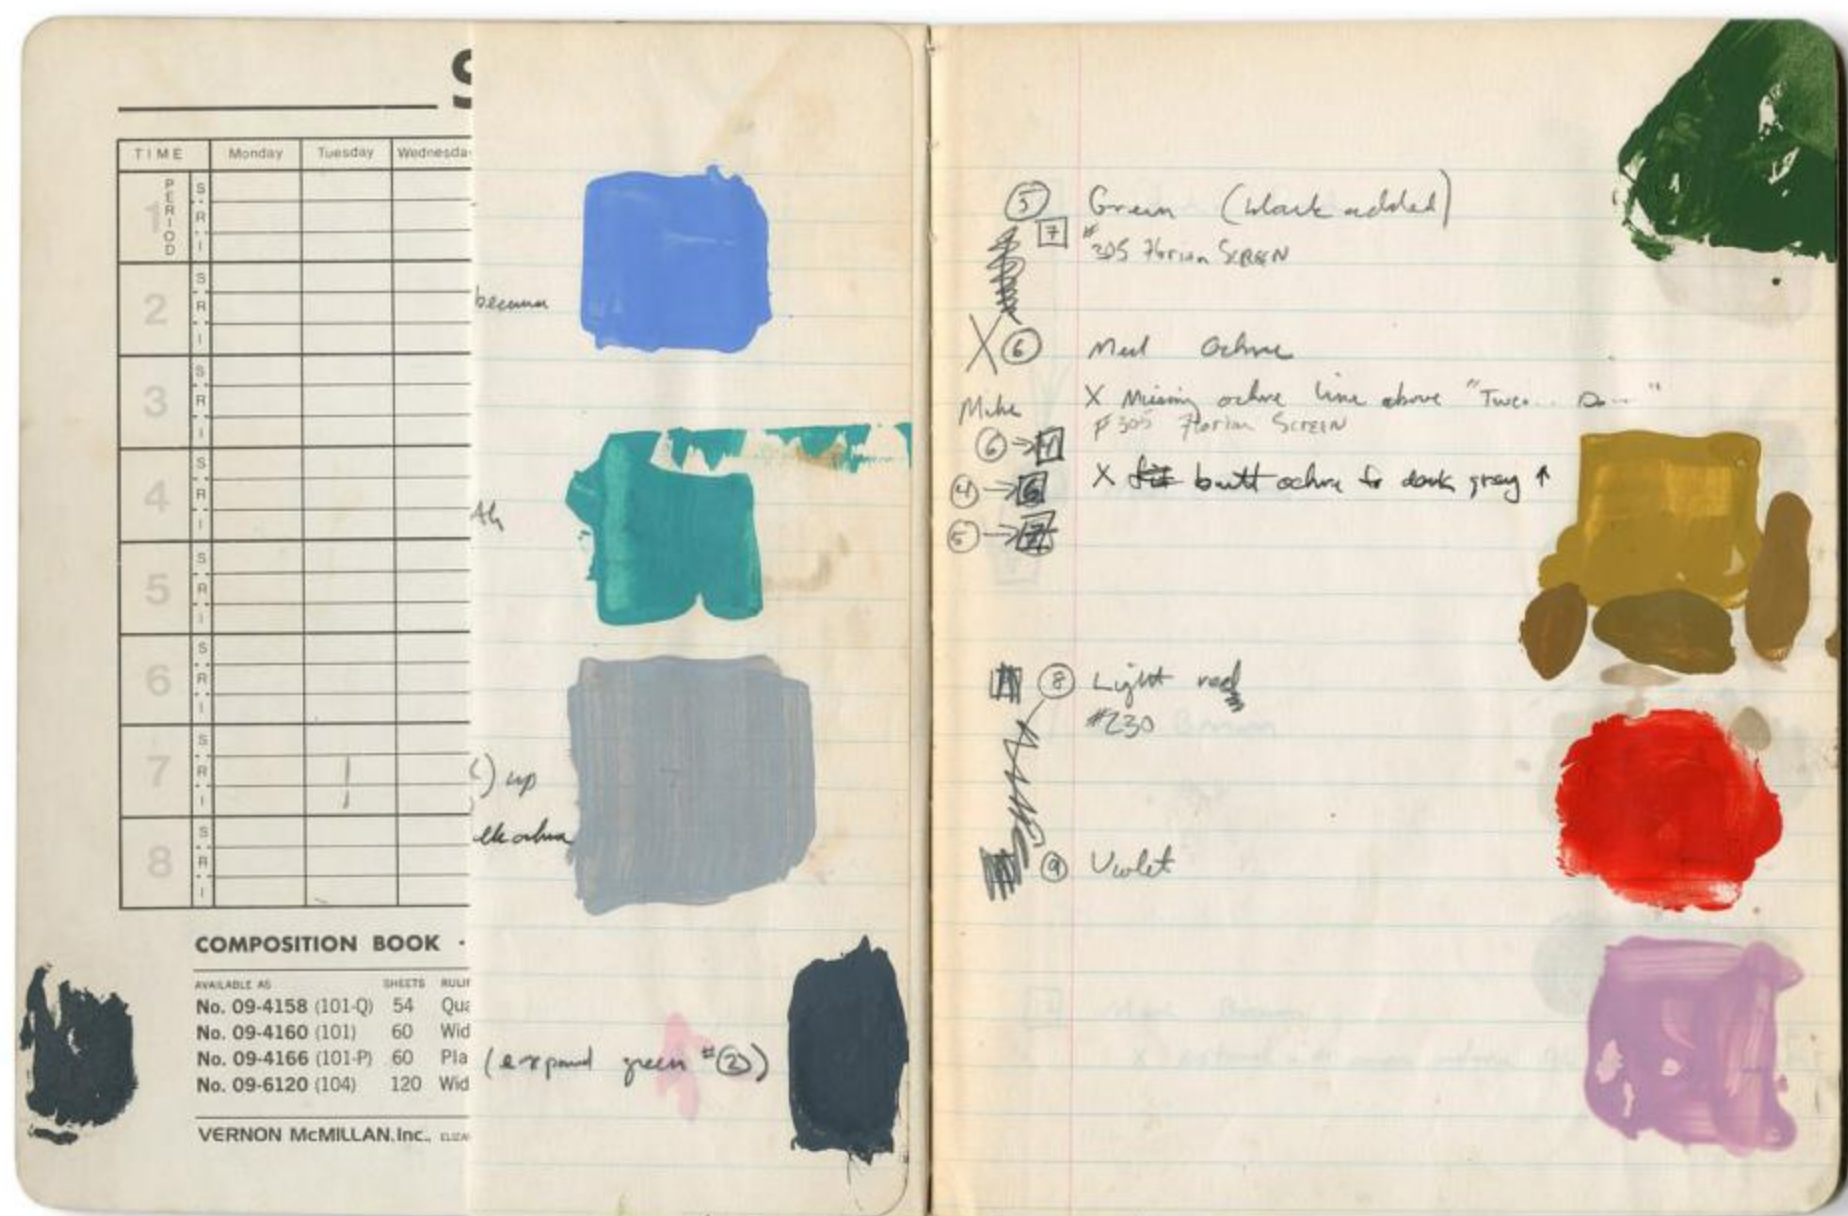 S
TIME Monday Tuesday Wednesda
1 PERIOD S R I
2 S R I
3 S R I
4 S R I
5 S R I
6 S R I
7 S R I
8 S R I
COMPOSITION BOOK ·
AVAILABLE AS SHEETS
No. 09-4158 (101-Q) 54 Qua
No. 09-4160 (101) 60 Wid
No. 09-4166 (101-P) 60 Pla
No. 09-6120 (104) 120 Wid
VERNON McMILLAN, Inc.,
) up
(expand green #②)
⑤ Green (black added)
7 # 305 Florian SCREEN
X ⑥ Med Ochre
X Missing ochre line above "Two...
Mike
# 305 Florian SCREEN
⑥ →
X butt ochre to dark gray ↑
④ → 6
⑤ → 7
⑧ Light red
#230
⑨ Violet